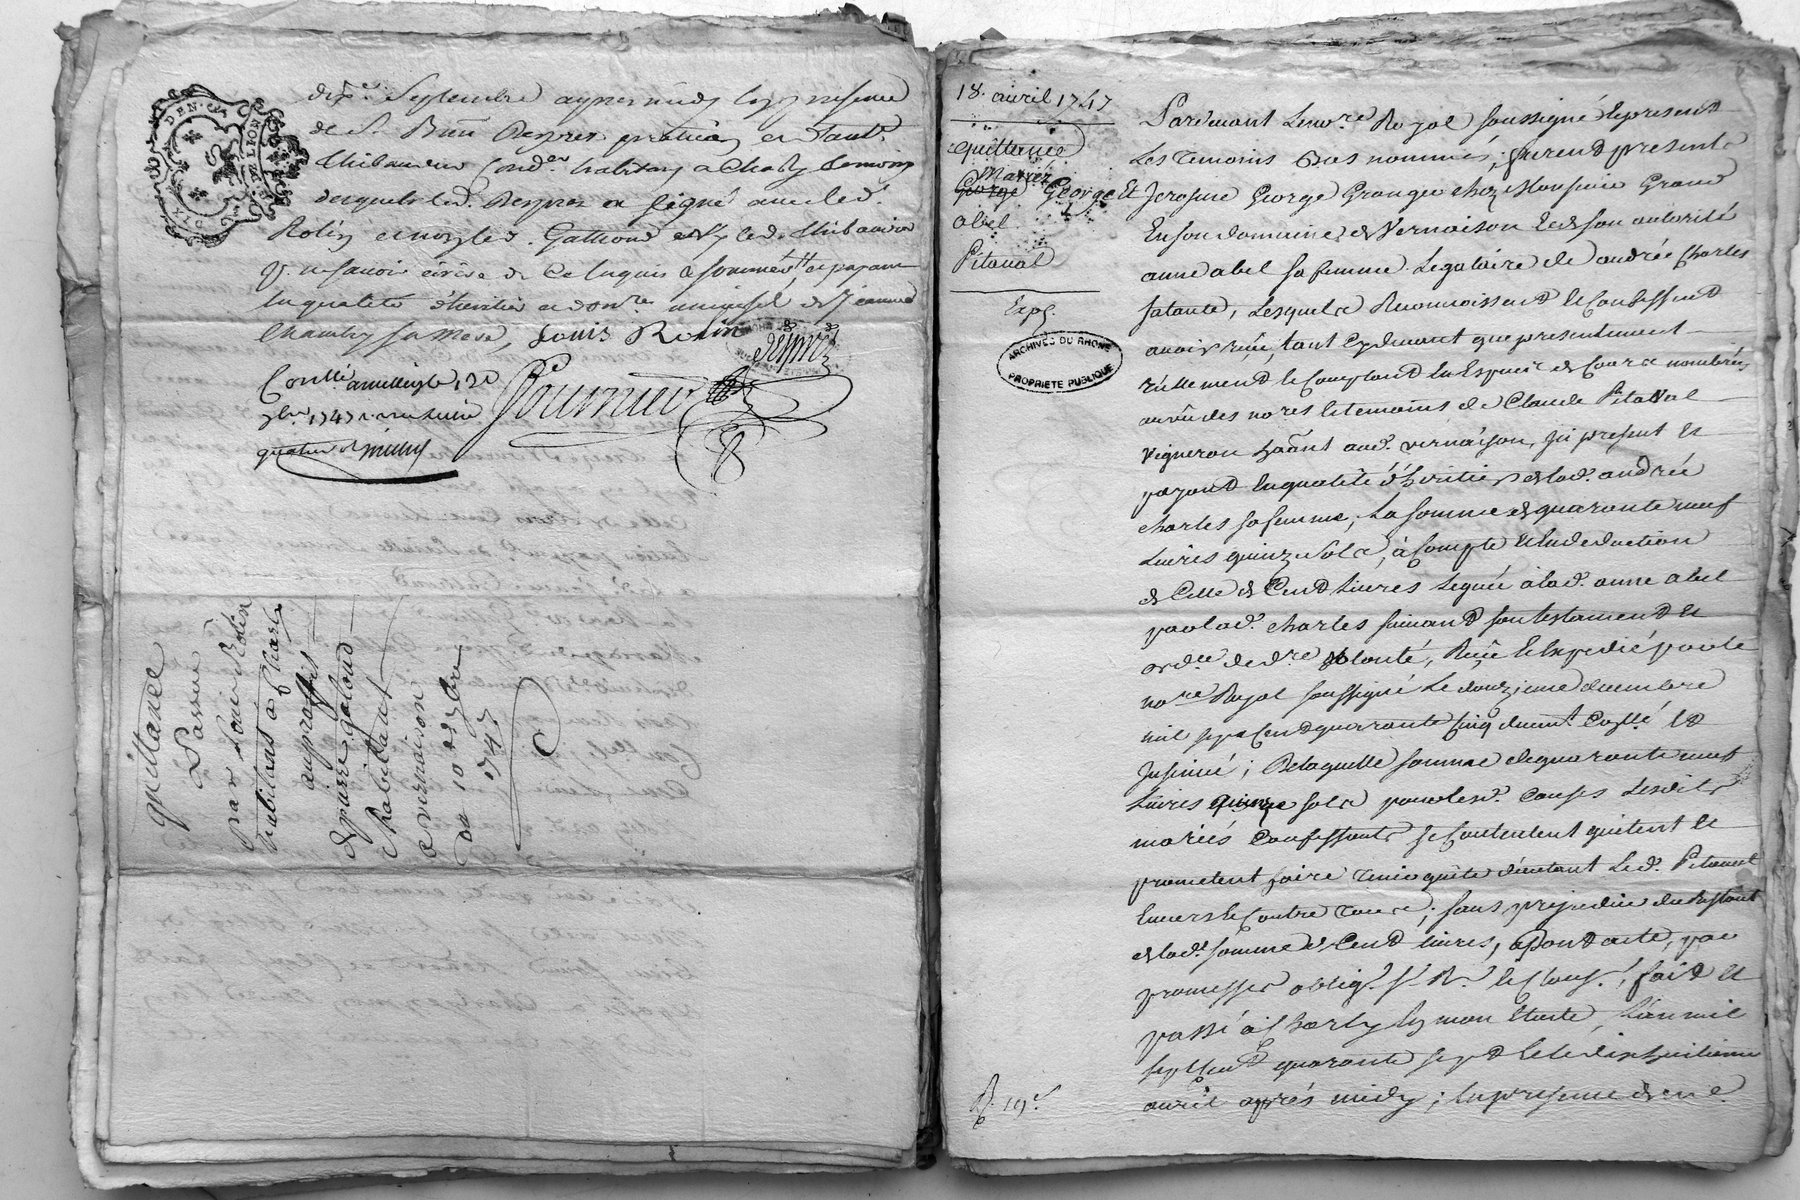 GEN. DE LYON
DIX DEN.
Septembre apres midy en presence
de Sr. Benn Desprez praticien et Jant.
Thibaudier Cord.er habitans a Charly temoins
desquels led. Desprez a signé avec led.
Robin et non led. Gathoud et led. Thibaudier
p. ne savoir écrire de ce Enquis & sommés
la qualité d'heritier universel de Jeanne
Chambry sa mere, Louis Robin
Desprez
Conllé a millery le 20
7bre 1747 reçu
quatre
Fournier
quittance
Passée
par Louis Robin
habitant a Charly
au proffit
de pierre gatoud
habitant
a vernaison
Du 10 7bre
1747
C
18. avril 1747
quittance
Mariéz
George George Et
Abel
Pitaval
Exp.
ARCHIVES DU RHONE
PROPRIETE PUBLIQUE
Pardevant Le no.re Royal soussigné & present
Les temoins bas nommés, furent presents
Jerosme George Granger chez Monsieur Grand
En son domaine de Vernaison & de son autorité
anne abel sa femme Legataire de andrée Charles
sa tante, Lesquels Reconnoissent & Confessent
avoir reçu, tant Cydevant que presentement
réellement & Comptant En Espece de Cours nombrées
au vû des no.res & temoins de Claude Pitaval
vigneron ha͠nt aud. vernaison, ici present &
payant En qualité d'heritier de lad. andrée
charles sa femme, La somme de quarante neuf
Livres quinze sols, à Compte & En deduction
de Celle de Cent Livres Leguée à lad. anne abel
par lad. charles suivant son testament &
ord.re de d.re volonté, Reçû & Expedié par le
no.re Royal soussigné Le douzieme decembre
mil sept Cent quarante Cinq duement Conllé &
Insinué; De laquelle somme de quarante neuf
Livres quinze sols pour les d. Causes Lesdits
mariés Confessants se Contentent quitent &
prometent faire tenir quitte d'autant Led. Pitaval
Envers & Contre tous, sans prejudice du Restant
de lad. somme de Cent livres, dont acte, par
promesses oblig. s. R. & Claus. fait &
passé à Charly En mon Etude, L'an mil
sept Cent quarante sept & le dix huitieme
avril après midy; En presence de me.
R. 19.s